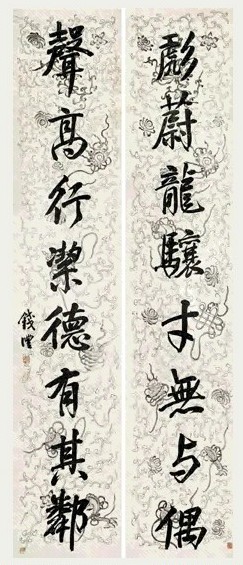 彪蔚龍驤才無与偶
聲高行潔德有其鄰
錢灃